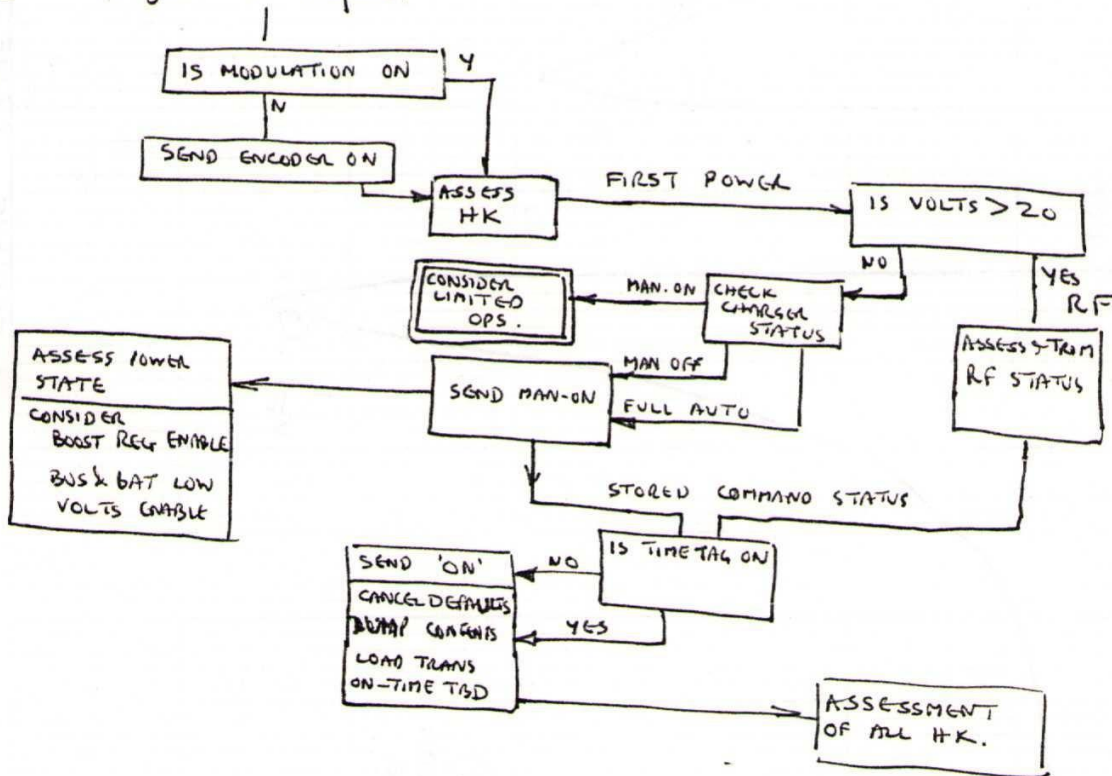 IS MODULATION ON
Y
N
SEND ENCODER ON
ASSESS
HK
FIRST POWER
IS VOLTS > 20
NO
YES
RF
CONSIDER
LIMITED
OPS.
MAN. ON
CHECK
CHARGER
STATUS
ASSESS & TRIM
RF STATUS
MAN OFF
SEND MAN-ON
FULL AUTO
ASSESS POWER
STATE
CONSIDER
BOOST REG ENABLE
BUS & BAT LOW
VOLTS ENABLE
STORED COMMAND STATUS
IS TIME TAG ON
NO
YES
SEND 'ON'
CANCEL DEFAULTS
DUMP CONTENTS
LOAD TRANS
ON-TIME TBD
ASSESSMENT
OF ALL HK.